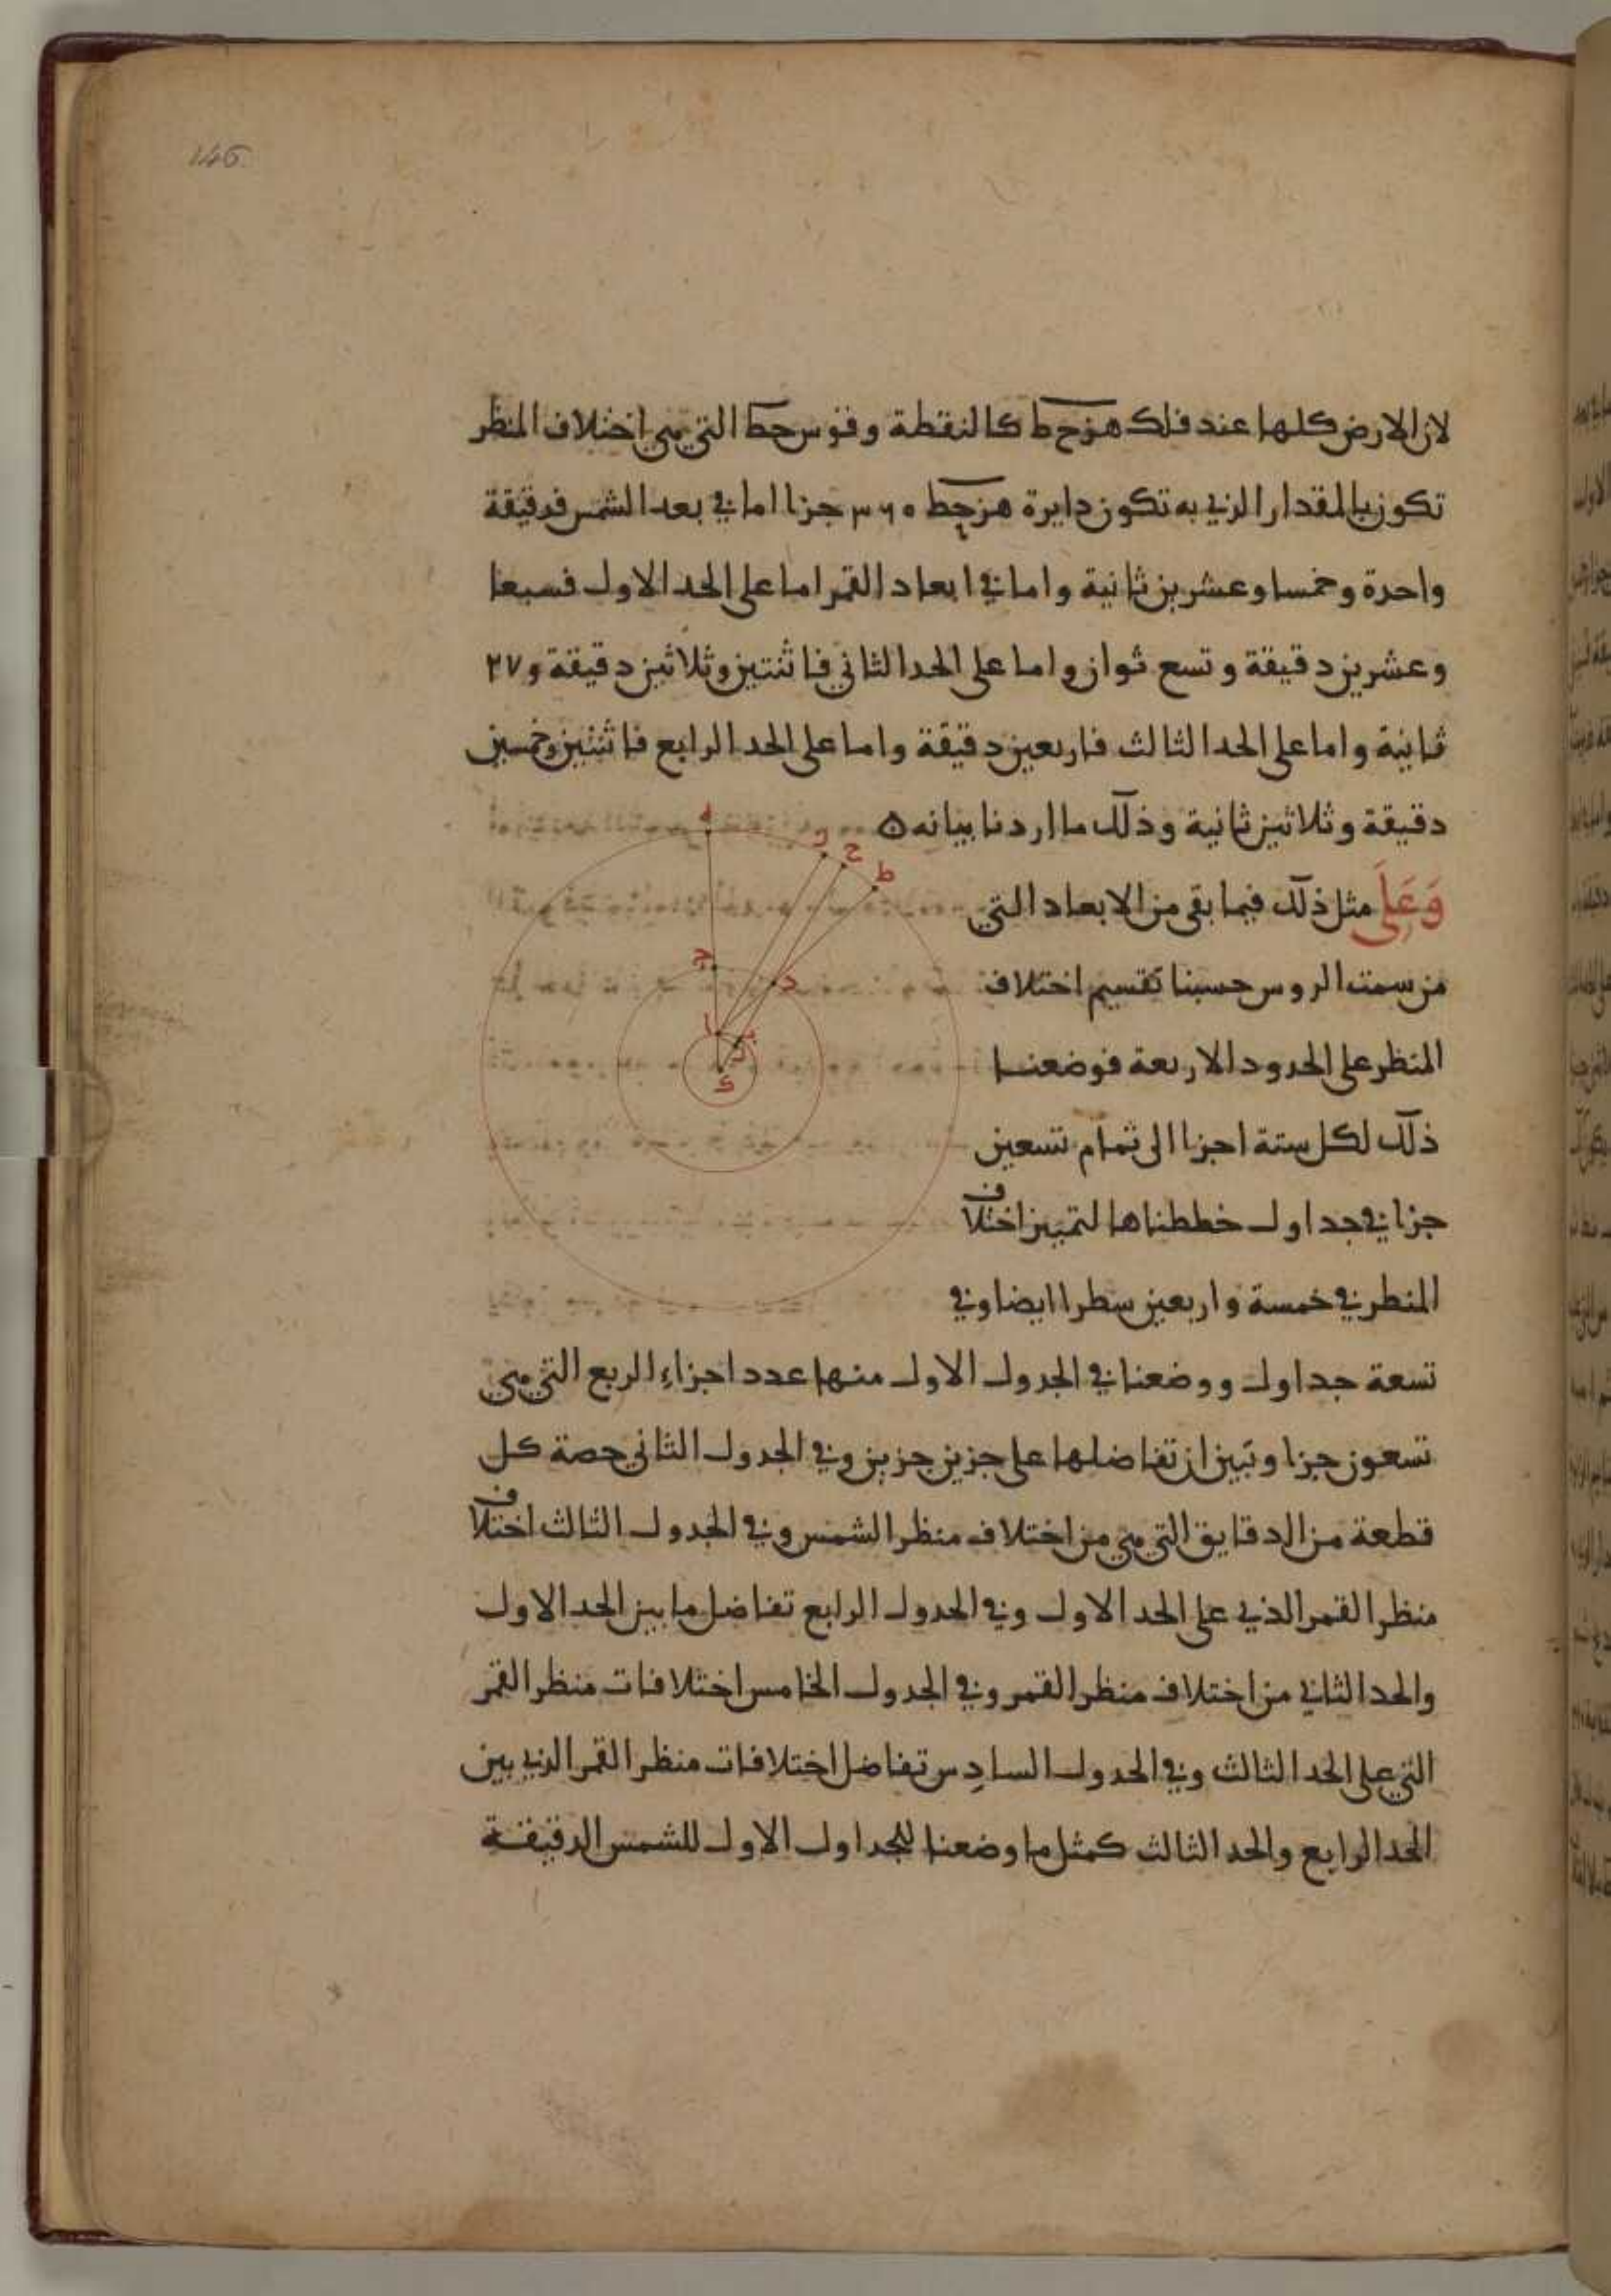 146
لان الارض كلها عند فلك هزحط كالنقطة وقوس حط التي هي اختلاف المنظر
تكون بالمقدار الذي به تكون دايرة هزحط ٣٦٠ جزا اما في بعد الشمس فدقيقة
واحدة وخمسا وعشرين ثانية واما في ابعاد القمر اما على الحد الاول فسبعا
وعشرين دقيقة وتسع ثوان واما على الحد الثاني فاثنتين وثلاثين دقيقة و ٢٧
ثانية واما على الحد الثالث فاربعين دقيقة واما على الحد الرابع فاثنتين وخمسين
دقيقة وثلاثين ثانية وذلك ما اردنا بيانه ه
وَعَلَى مثل ذلك فيما بقى من الابعاد التي
من سمت الروس حسبنا تقسيم اختلاف
المنظر على الحدود الاربعة فوضعنا
ذلك لكل ستة اجزا الى تمام تسعين
جزا في جداول خططناها لتمييز اختلاف
المنطر في خمسة واربعين سطرا ايضا وفي
تسعة جداول ووضعنا في الجدول الاول منها عدد اجزاء الربع التي هي
تسعون جزا وتبين ان تفاضلها على جزين جزين وفي الجدول الثاني حصة كل
قطعة من الدقايق التي هي من اختلاف منظر الشمس وفي الجدول الثالث اختلاف
منظر القمر الذي على الحد الاول وفي الحدول الرابع تفاضل ما بين الحد الاول
والحد الثاني من اختلاف منظر القمر وفي الجدول الخامس اختلافات منظر القمر
التي على الحد الثالث وفي الحدول السادس تفاضل اختلافات منظر القمر الذي بين
الحد الرابع والحد الثالث كمثل ما وضعنا للجداول الاول للشمس الدقيقة
ه
ز
ح
ط
ج
د
ا
ب
ك